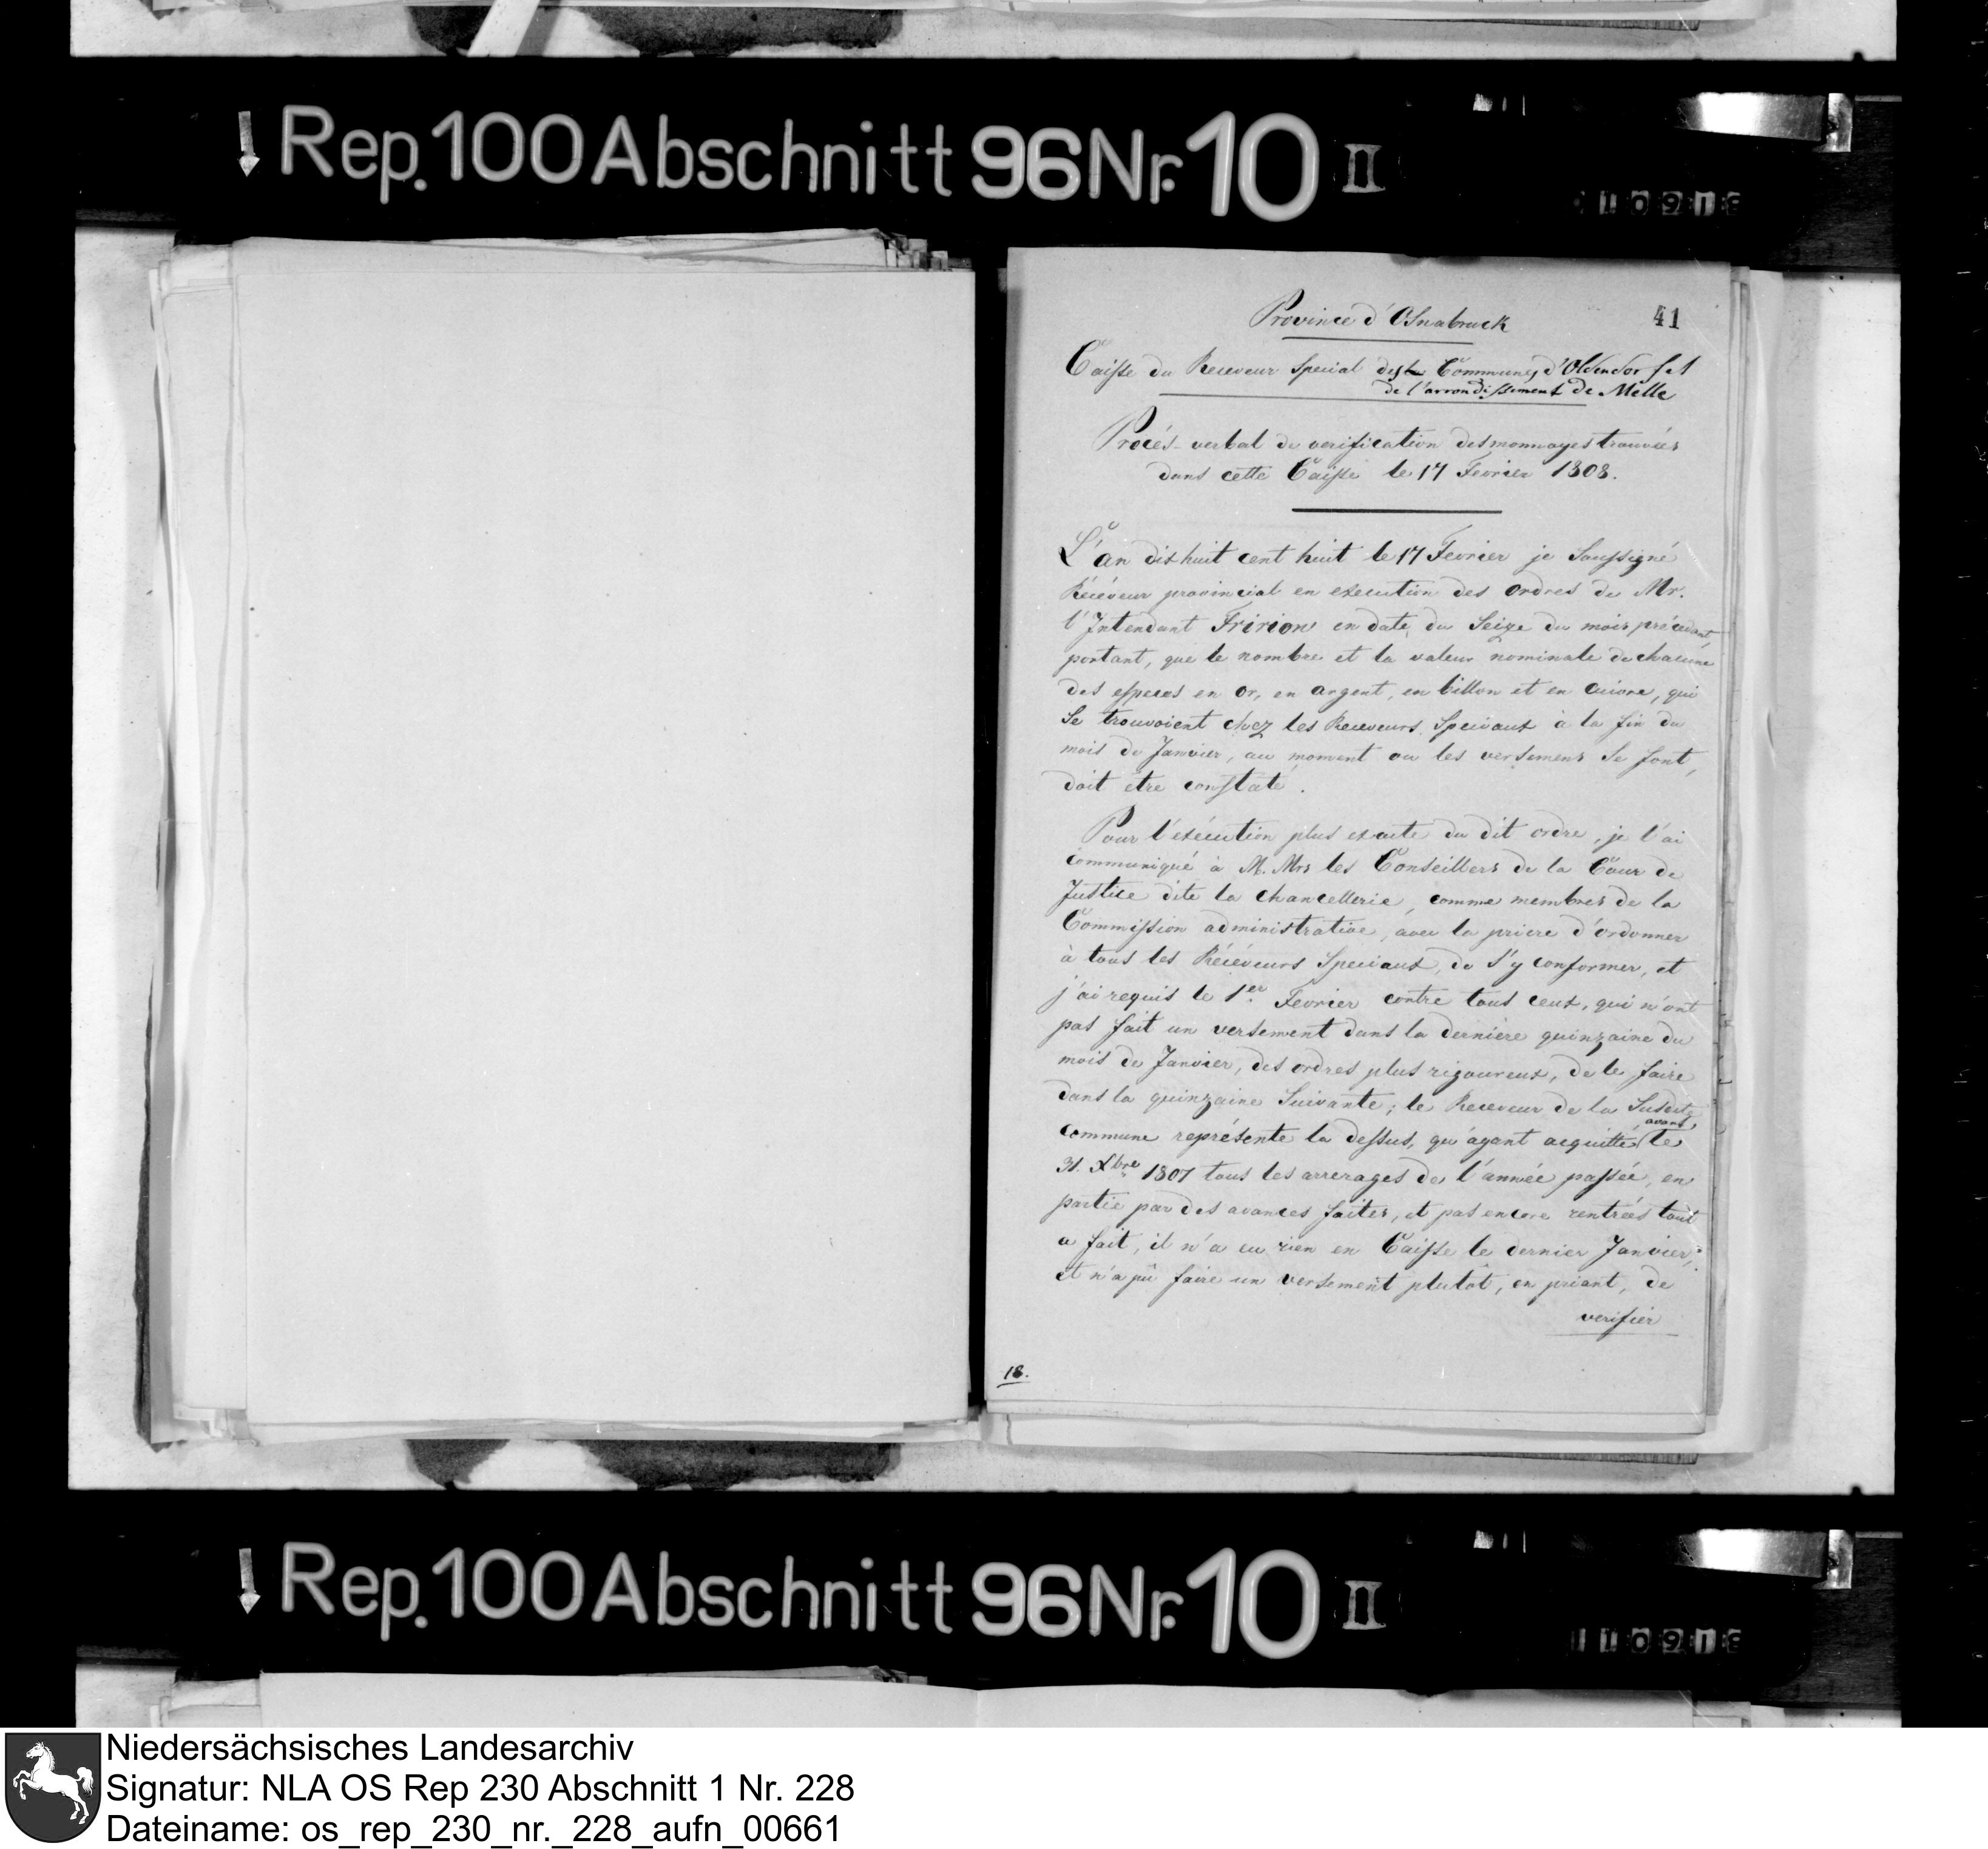 Rep. 100 Abschnitt 96 Nr. 10 II
Province d'Osnabruck
41
Caisse du Receveur Special des Communes d'Oldendorf et
de l'arrondissement de Melle
Procés-verbal de verification des monnayes trouvées
dans cette Caisse le 17 Fevrier 1808.
L'an dix huit cent huit le 17 Fevrier je Soussigné
Récéveur provincial en execution des ordres de Mr.
l'Intendant Fririon en date du Seize du mois précedant
portant, que le nombre et la valeur nominale de chacune
des especes en or, en argent, en billon et en cuivre, qui
Se trouvoient chez les Receveurs Speciaux à la fin du
mois de Janvier, au moment ou les versemens Se font,
doit être constaté.
Pour l'exécution plus exacte du dit ordre, je l'ai
communiqué à M. Mrs les Conseillers de la Cour de
Justice dite la chancellerie, comme membres de la
Commission administrative, avec la priere d'ordonner
à tous les Récéveurs Speciaux, de S'y conformer, et
j'ai requis le 1er Fevrier contre tous ceux, qui n'ont
pas fait un versement dans la derniere quinzaine du
mois de Janvier, des ordres plus rigoureux, de le faire
dans la quinzaine Suivante; le Receveur de la Susdite
commune représente la dessus, qu'ayant acquitté avant le
31. Xbre 1807 tous les arrerages de l'année passée, en
partie par des avances faites, et pas encore rentrées tout
a fait, il n'a eu rien en Caisse le dernier Janvier,
et n'a pû faire un versement plutôt, en priant, de
verifier
18.
Rep. 100 Abschnitt 96 Nr. 10 II
Niedersächsisches Landesarchiv
Signatur: NLA OS Rep 230 Abschnitt 1 Nr. 228
Dateiname: os_rep_230_nr._228_aufn_00661